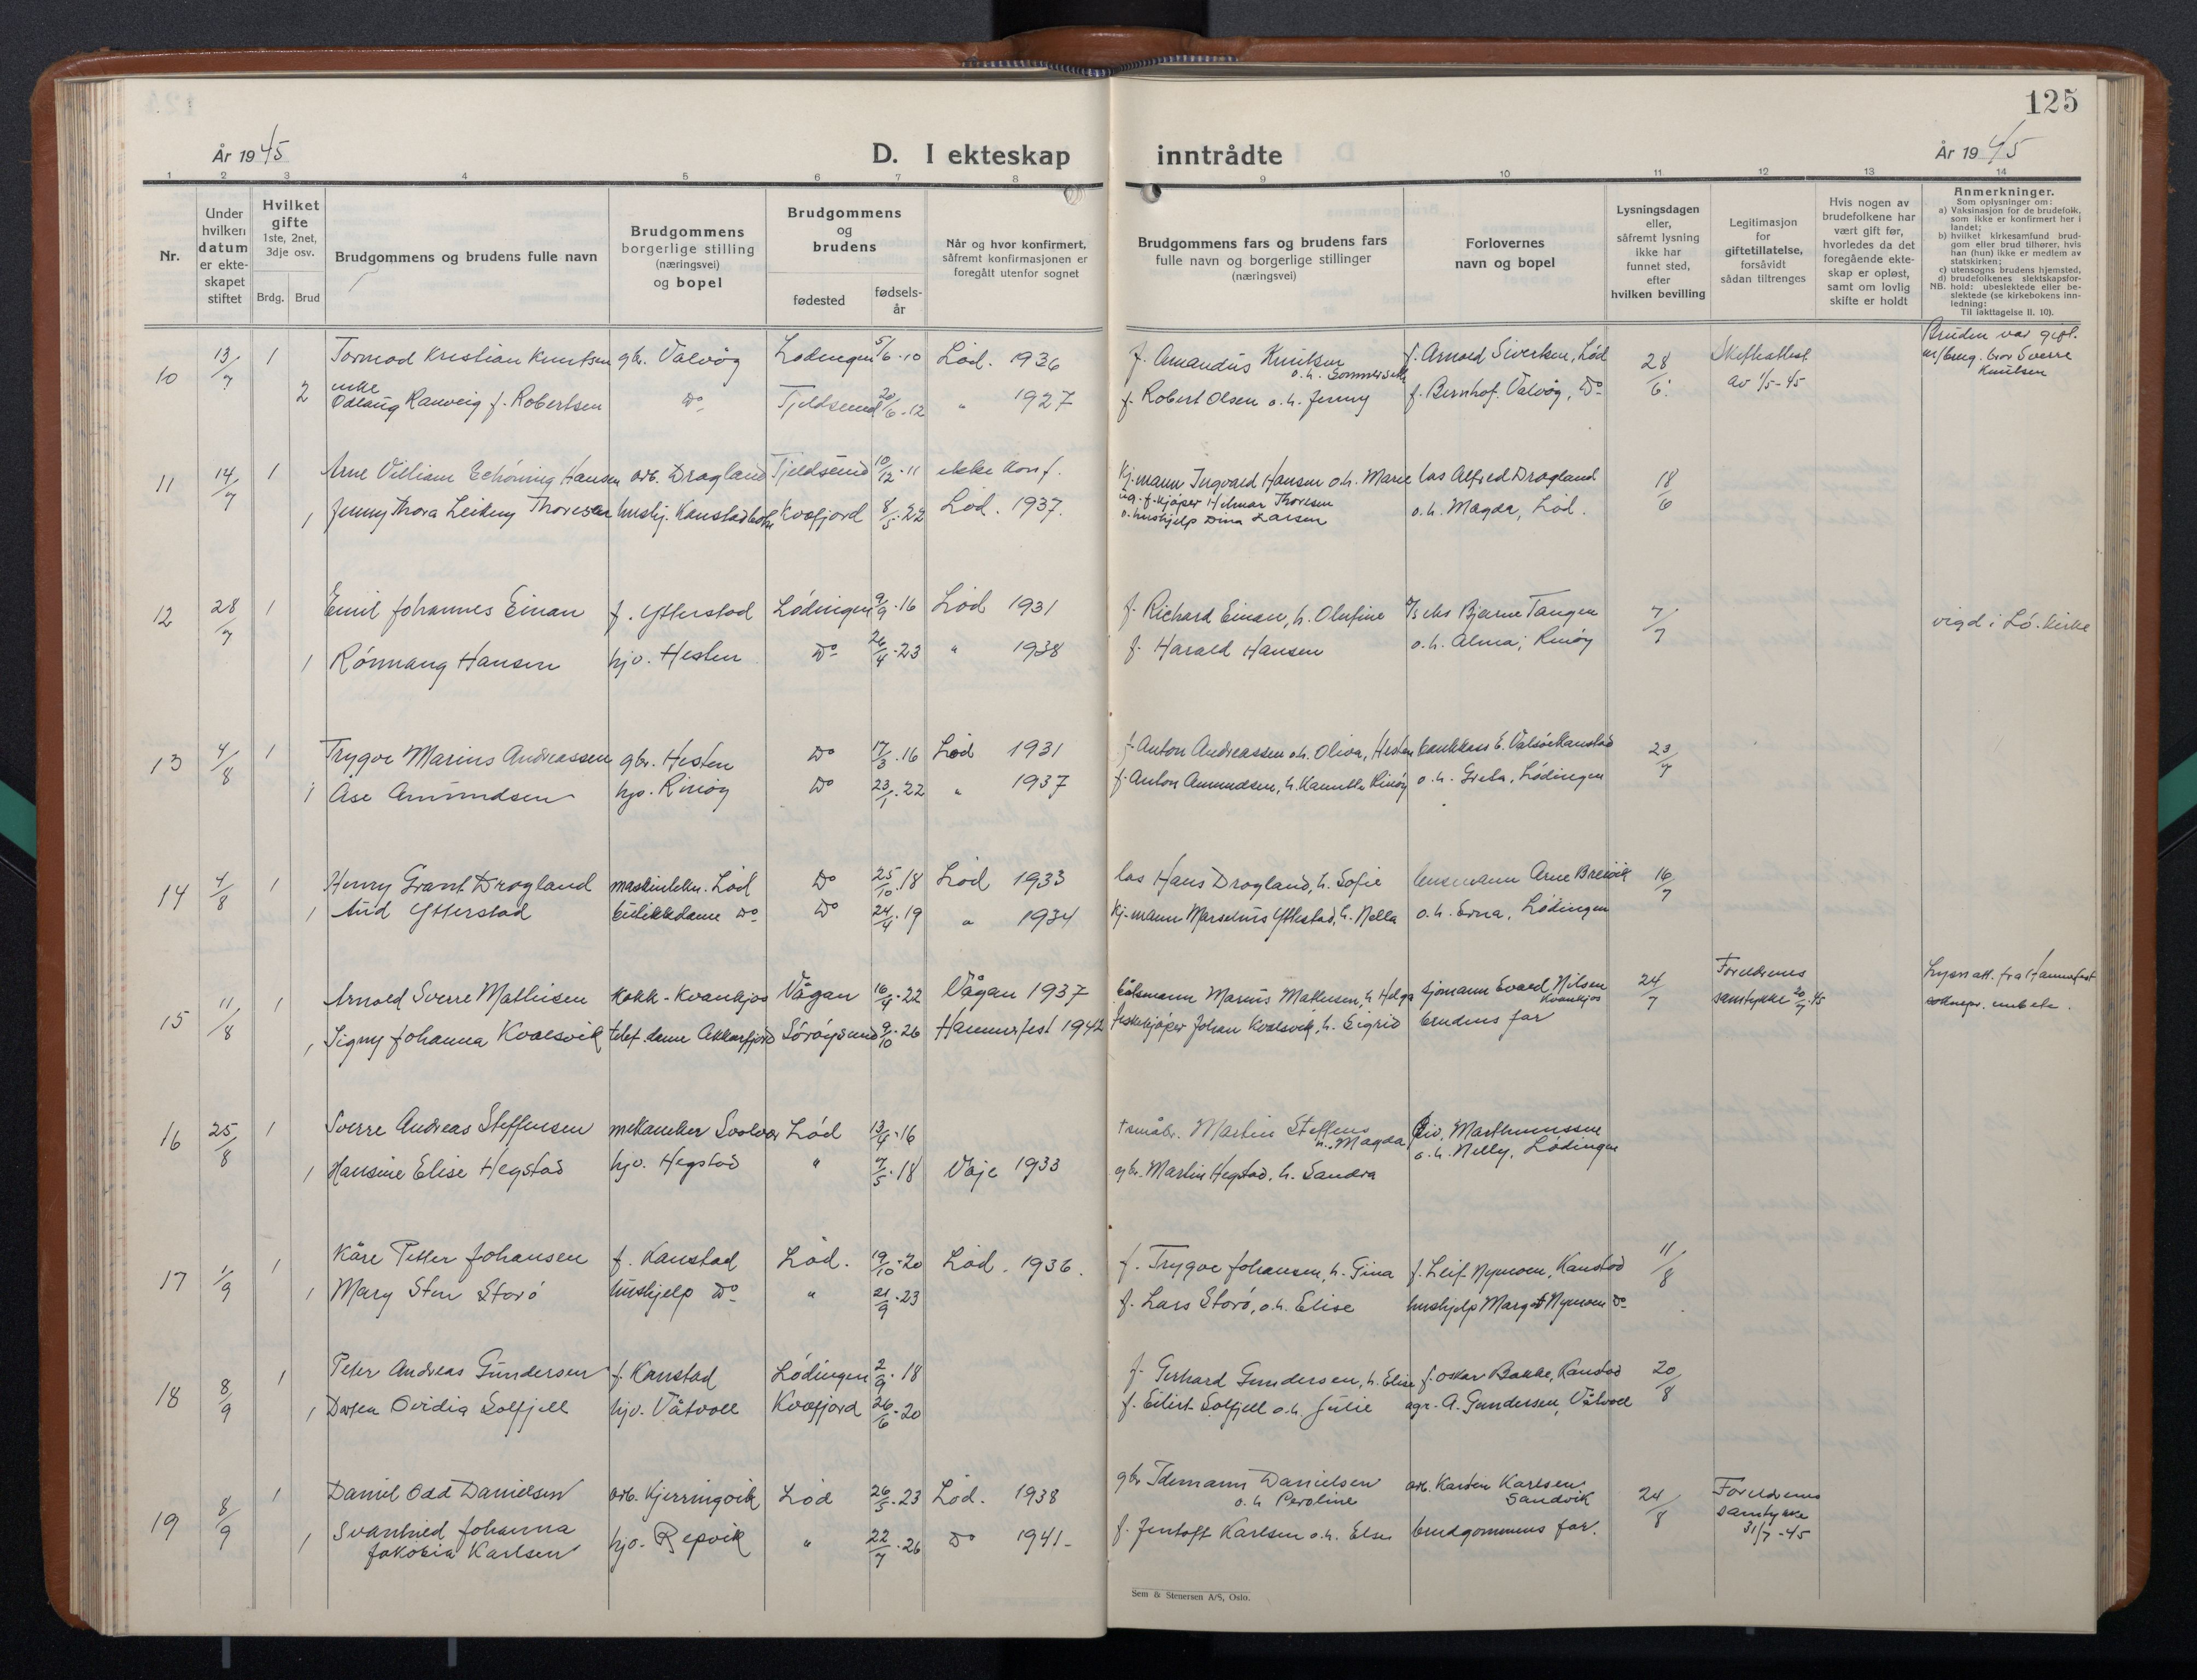 125
År 1945
D. I ekteskap inntrådte
År 1945
1 2 3 4 5 6 7 8 9 10 11 12 13 14
Nr.
Under hvilken datum er ekteskapet stiftet
Hvilket gifte 1ste, 2net, 3dje osv.
Brdg. Brud
Brudgommens og brudens fulle navn
Brudgommens borgerlige stilling (næringsvei) og bopel
Brudgommens og brudens
fødested
fødselsår
Når og hvor konfirmert, såfremt konfirmasjonen er foregått utenfor sognet
Brudgommens fars og brudens fars fulle navn og borgerlige stillinger (næringsvei)
Forlovernes navn og bopel
Lysningsdagen eller, såfremt lysning ikke har funnet sted, efter hvilken bevilling
Legitimasjon for giftetillatelse, forsåvidt sådan tiltrenges
Hvis nogen av brudefolkene har vært gift før, hvorledes da det foregående ekteskap er opløst, samt om lovlig skifte er holdt
Anmerkninger.
Som oplysninger om:
a) Vaksinasjon for de brudefolk, som ikke er konfirmert her i landet;
b) hvilket kirkesamfund brudgom eller brud tilhører, hvis han (hun) ikke er medlem av statskirken;
c) utensogns brudens hjemsted,
d) brudefolkenes slektskapsforhold: ubeslektede eller beslektede (se kirkebokens innledning:
NB.
Til iakttagelse II. 10).
10 13/7 1 Tormod Kristian Knutsen gbr. Valvåg Lødingen 5/6-10 Lød. 1936 f. Amandus Knutsen o.h. Sommerseth f. Arnold Sivertsen, Lød 28/6 Skifteattest av 1/5-45 Bruden var gift m/brug. bror Sverre Knutsen
2 enke Odlaug Ranveig f. Robertsen Do Tjeldsund 20/6-12 " 1927 f. Robert Olsen o.h. Jenny f. Bernhof. Valvåg, Do
11 14/7 1 Arne Villiam Schöning Hansen arb. Dragland Tjeldsund 10/12-11 ikke konf. Kj.mann Ingvald Hansen o.h. Marie los Alfred Dragland 18/6
1 Jenny Thora Thoresen hushj. Kanstadbotn Kvæfjord 8/5-22 Lød. 1937. f.kjøper Hilmar Thoresen o. hushjelp Dina Larsen o.h. Magda, Lød.
12 28/7 1 Emil Johannes Einan f. Ytterstad Lødingen 9/9-16 Lød 1931 f. Richard Einan, h. Olufine Bjarne Tangen 7/7 vigd i Lø. kirke
1 Rönnaug Hansen hjv. Hesten Do 26/4-23 " 1938 f. Harald Hansen o.h. Alma, Rinøy
13 4/8 1 Trygve Marius Andreassen gbr. Hesten Do 17/3-16 Lød 1931 f. Anton Andreassen o.h. Oliva, Hesten bankkass E. Kanstad 23/7
1 Åse Amundsen hjv. Rinøy Do 23/1-22 " 1937 f. Anton Amundsen, h. Rinøy o.h. Greta, Lødingen
14 4/8 1 Henny Grant Dragland Lød Do 25/10-18 Lød 1933 los Hans Dragland, h. Sofie lensmann Arne Breivik 16/7
1 Aud Ytterstad butikkdame Do Do 24/4-19 " 1934 Kj.mann Marselius Ytterstad, h. Nella o.h. Erna, Lødingen
15 11/8 1 Arnold Sverre Mathisen Kokk - Kvankjos Vågan 16/4-22 Vågan 1937 båtsmann Marius Mathisen, h. Helga sjømann Evald Nilsen Kvankjos 24/7 Foreldrenes samtykke 20/7-45 Lysn.att. fra Hammerfest sokneprembete.
1 Signy Johanna Kvalsvik telef.dame Akkarfjord Sörøysund 9/10-26 Hammerfest 1942 fiskekjøper Johan Kvalsvik, h. Sigrid brudens far
16 25/8 1 Sverre Andreas Steffensen mekaniker Svolvær Lød 13/4-16 † småbr. Martin Steffens h. Magda Marthinussen
1 Hansine Elise Hegstad hjv. Hegstad " 7/5-18 Våje 1933 gbr. Martin Hegstad, h. Sandra o.h. Nelly, Lødingen
17 1/9 1 Kåre Petter Johansen f. Kanstad Lød. 19/10-20 Lød. 1936. f. Trygve Johansen, h. Gina f. Leif Nymoen, Kanstad 11/8
1 Mary Sten Storø hushjelp Do " 21/9-23 f. Lars Storø, o.h. Elise hushjelp Margot Nymoen Do
18 8/9 1 Peter Andreas Gundersen f. Kanstad Lødingen 2/9-18 f. Gerhard Gundersen, h. Elise f. Oskar Bakke, Kanstad 20/8
1 Ovidia Solfjell hjv. Våtvoll Kvæfjord 26/6-20 f. Eilert Solfjell o.h. Julie agr. A. Gundersen, Våtvoll
19 8/9 1 Daniel Odd Danielsen arb. Kjerringvik Lød 26/5-23 Lød. 1938 gbr Idemann Danielsen o.h Peroline arb. Karsten Karlsen Sandvik 24/8 Foreldrenes samtykke 31/7-45
1 Svanhild Johanna Jakobia Karlsen hjv. Repvik " 22/7-26 Do 1941- f. Jentoft Karlsen o.h. Else brudgommens far.
Sem & Stenersen A/S, Oslo.